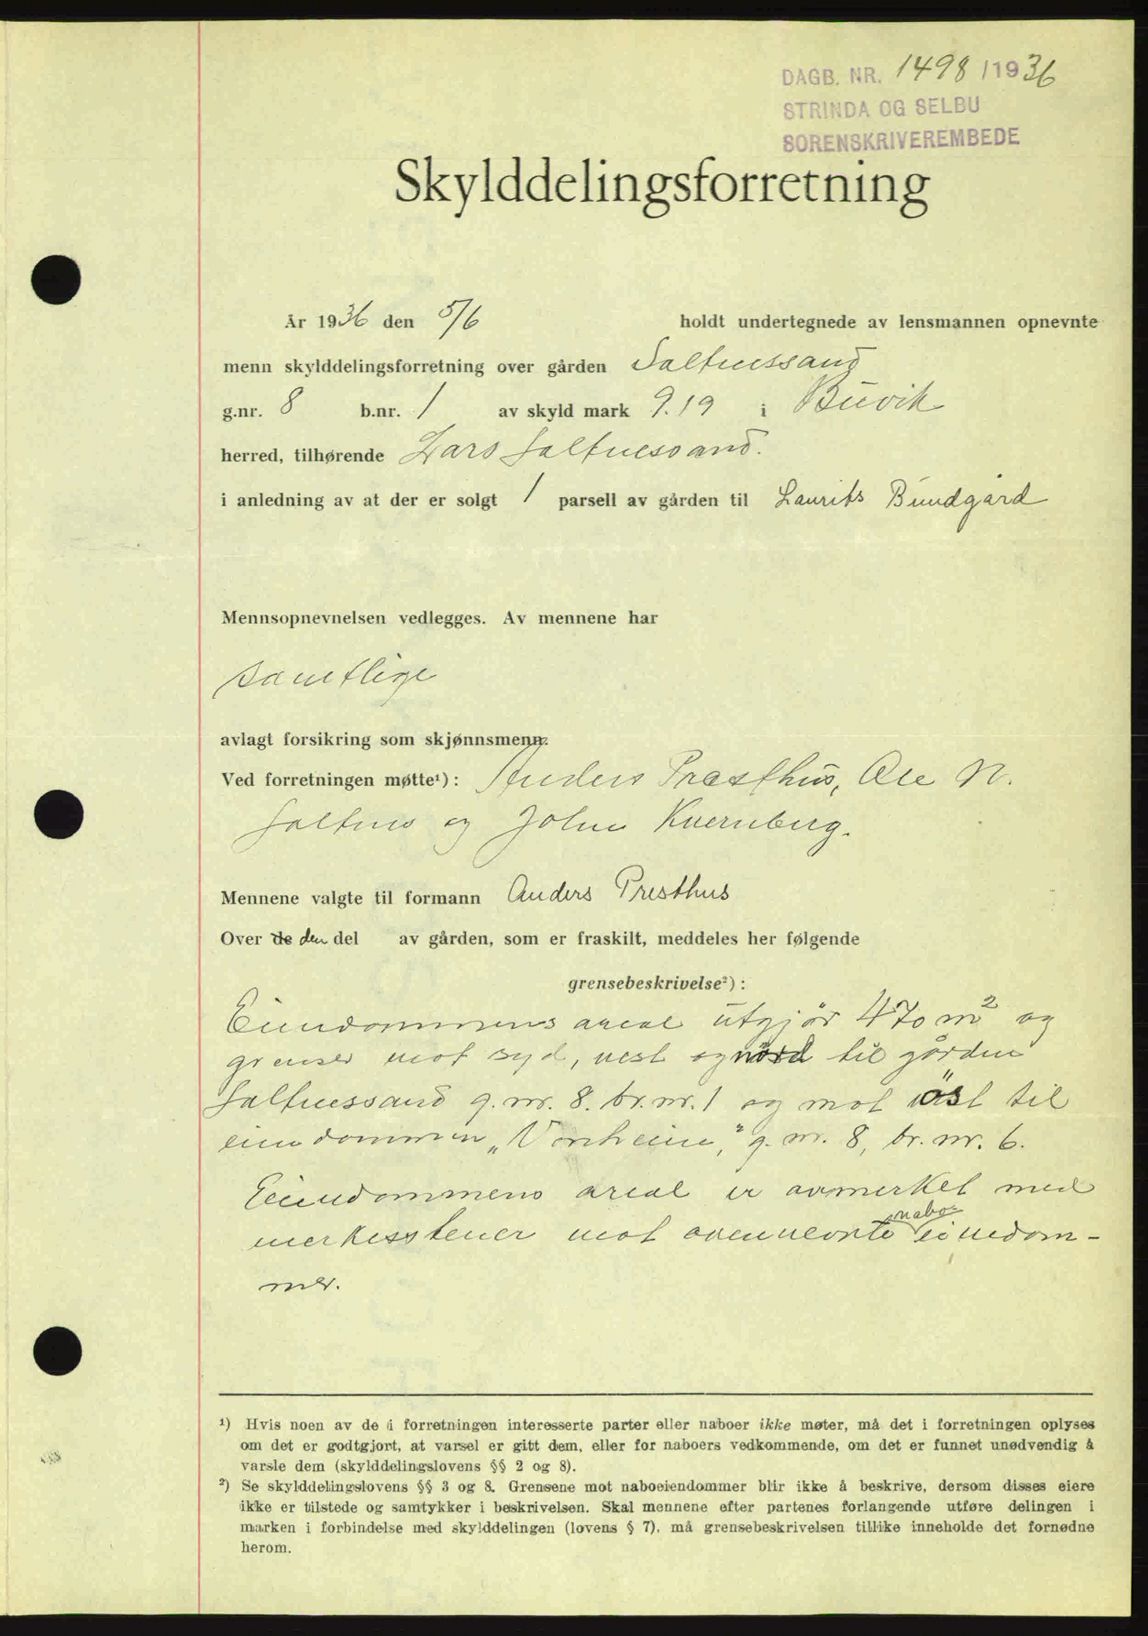 DAGB. NR. 1498/1936
STRINDA OG SELBU
SORENSKRIVEREMBEDE
Skylddelingsforretning
År 1936 den 5/6 holdt undertegnede av lensmannen opnevnte
menn skylddelingsforretning over gården Saltnessand
g.nr. 8 b.nr. 1 av skyld mark 9.19 i Buvik
herred, tilhørende Lars Saltnessand.
i anledning av at der er solgt 1 parsell av gården til Laurits Bundgård
Mennsopnevnelsen vedlegges. Av mennene har
samtlige
avlagt forsikring som skjønnsmenn.
Ved forretningen møtte¹): Anders Præsthus, Ole N.
Saltnes og John Kvernberg.
Mennene valgte til formann Anders Presthus
Over de den del av gården, som er fraskilt, meddeles her følgende
grensebeskrivelse²):
Eiendommens areal utgjør 470 m² og
grenser mot syd, vest og nord til gården
Saltnessand g. nr. 8. br. nr. 1 og mot øst til
eiendommen „Vonheim," g. nr. 8, br. nr. 6.
Eiendommens areal er avmerket med
merkesstener mot ovennevnte nabo-
eiendom-
mer.
¹) Hvis noen av de i forretningen interesserte parter eller naboer ikke møter, må det i forretningen oplyses
om det er godtgjort, at varsel er gitt dem, eller for naboers vedkommende, om det er funnet unødvendig å
varsle dem (skylddelingslovens §§ 2 og 8).
²) Se skylddelingslovens §§ 3 og 8. Grensene mot naboeiendommer blir ikke å beskrive, dersom disses eiere
ikke er tilstede og samtykker i beskrivelsen. Skal mennene efter partenes forlangende utføre delingen i
marken i forbindelse med skylddelingen (lovens § 7), må grensebeskrivelsen tillike inneholde det fornødne
herom.